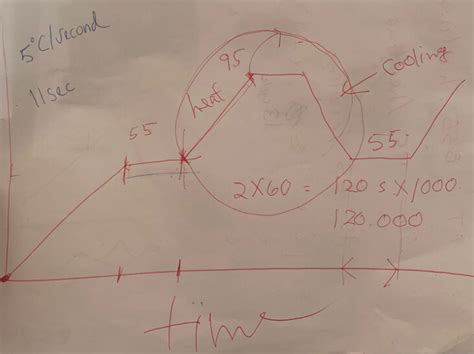 5°C/second
11sec
95
cooling
heat
55
55
2X60 = 120 s X 1000
120.000
time